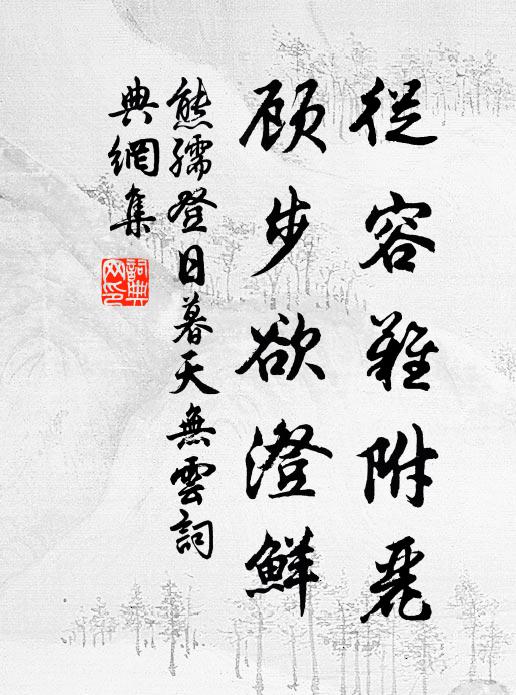 從容難附麗
顾步欲澄鮮
熊孺登日暮天無雲詞
典網集
詞典
网印